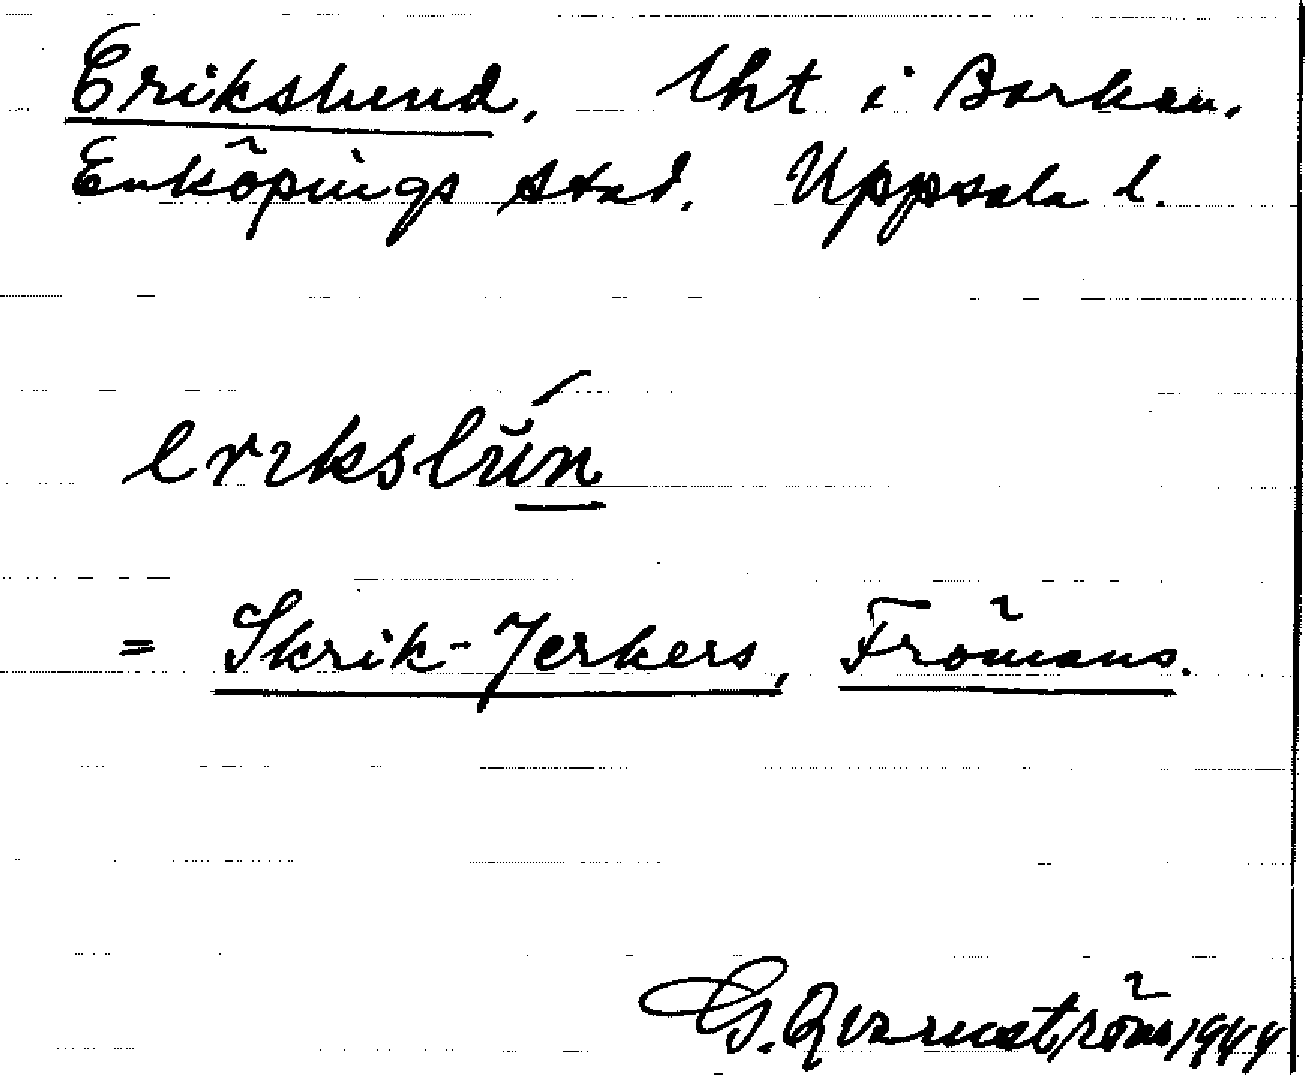 Erikslund. Lht i Barkan.
Enköpings stad. Uppsala l.
erikslŭ́n
= Skrik-Jerkers, Frömans.
G. Qvarnström 1944